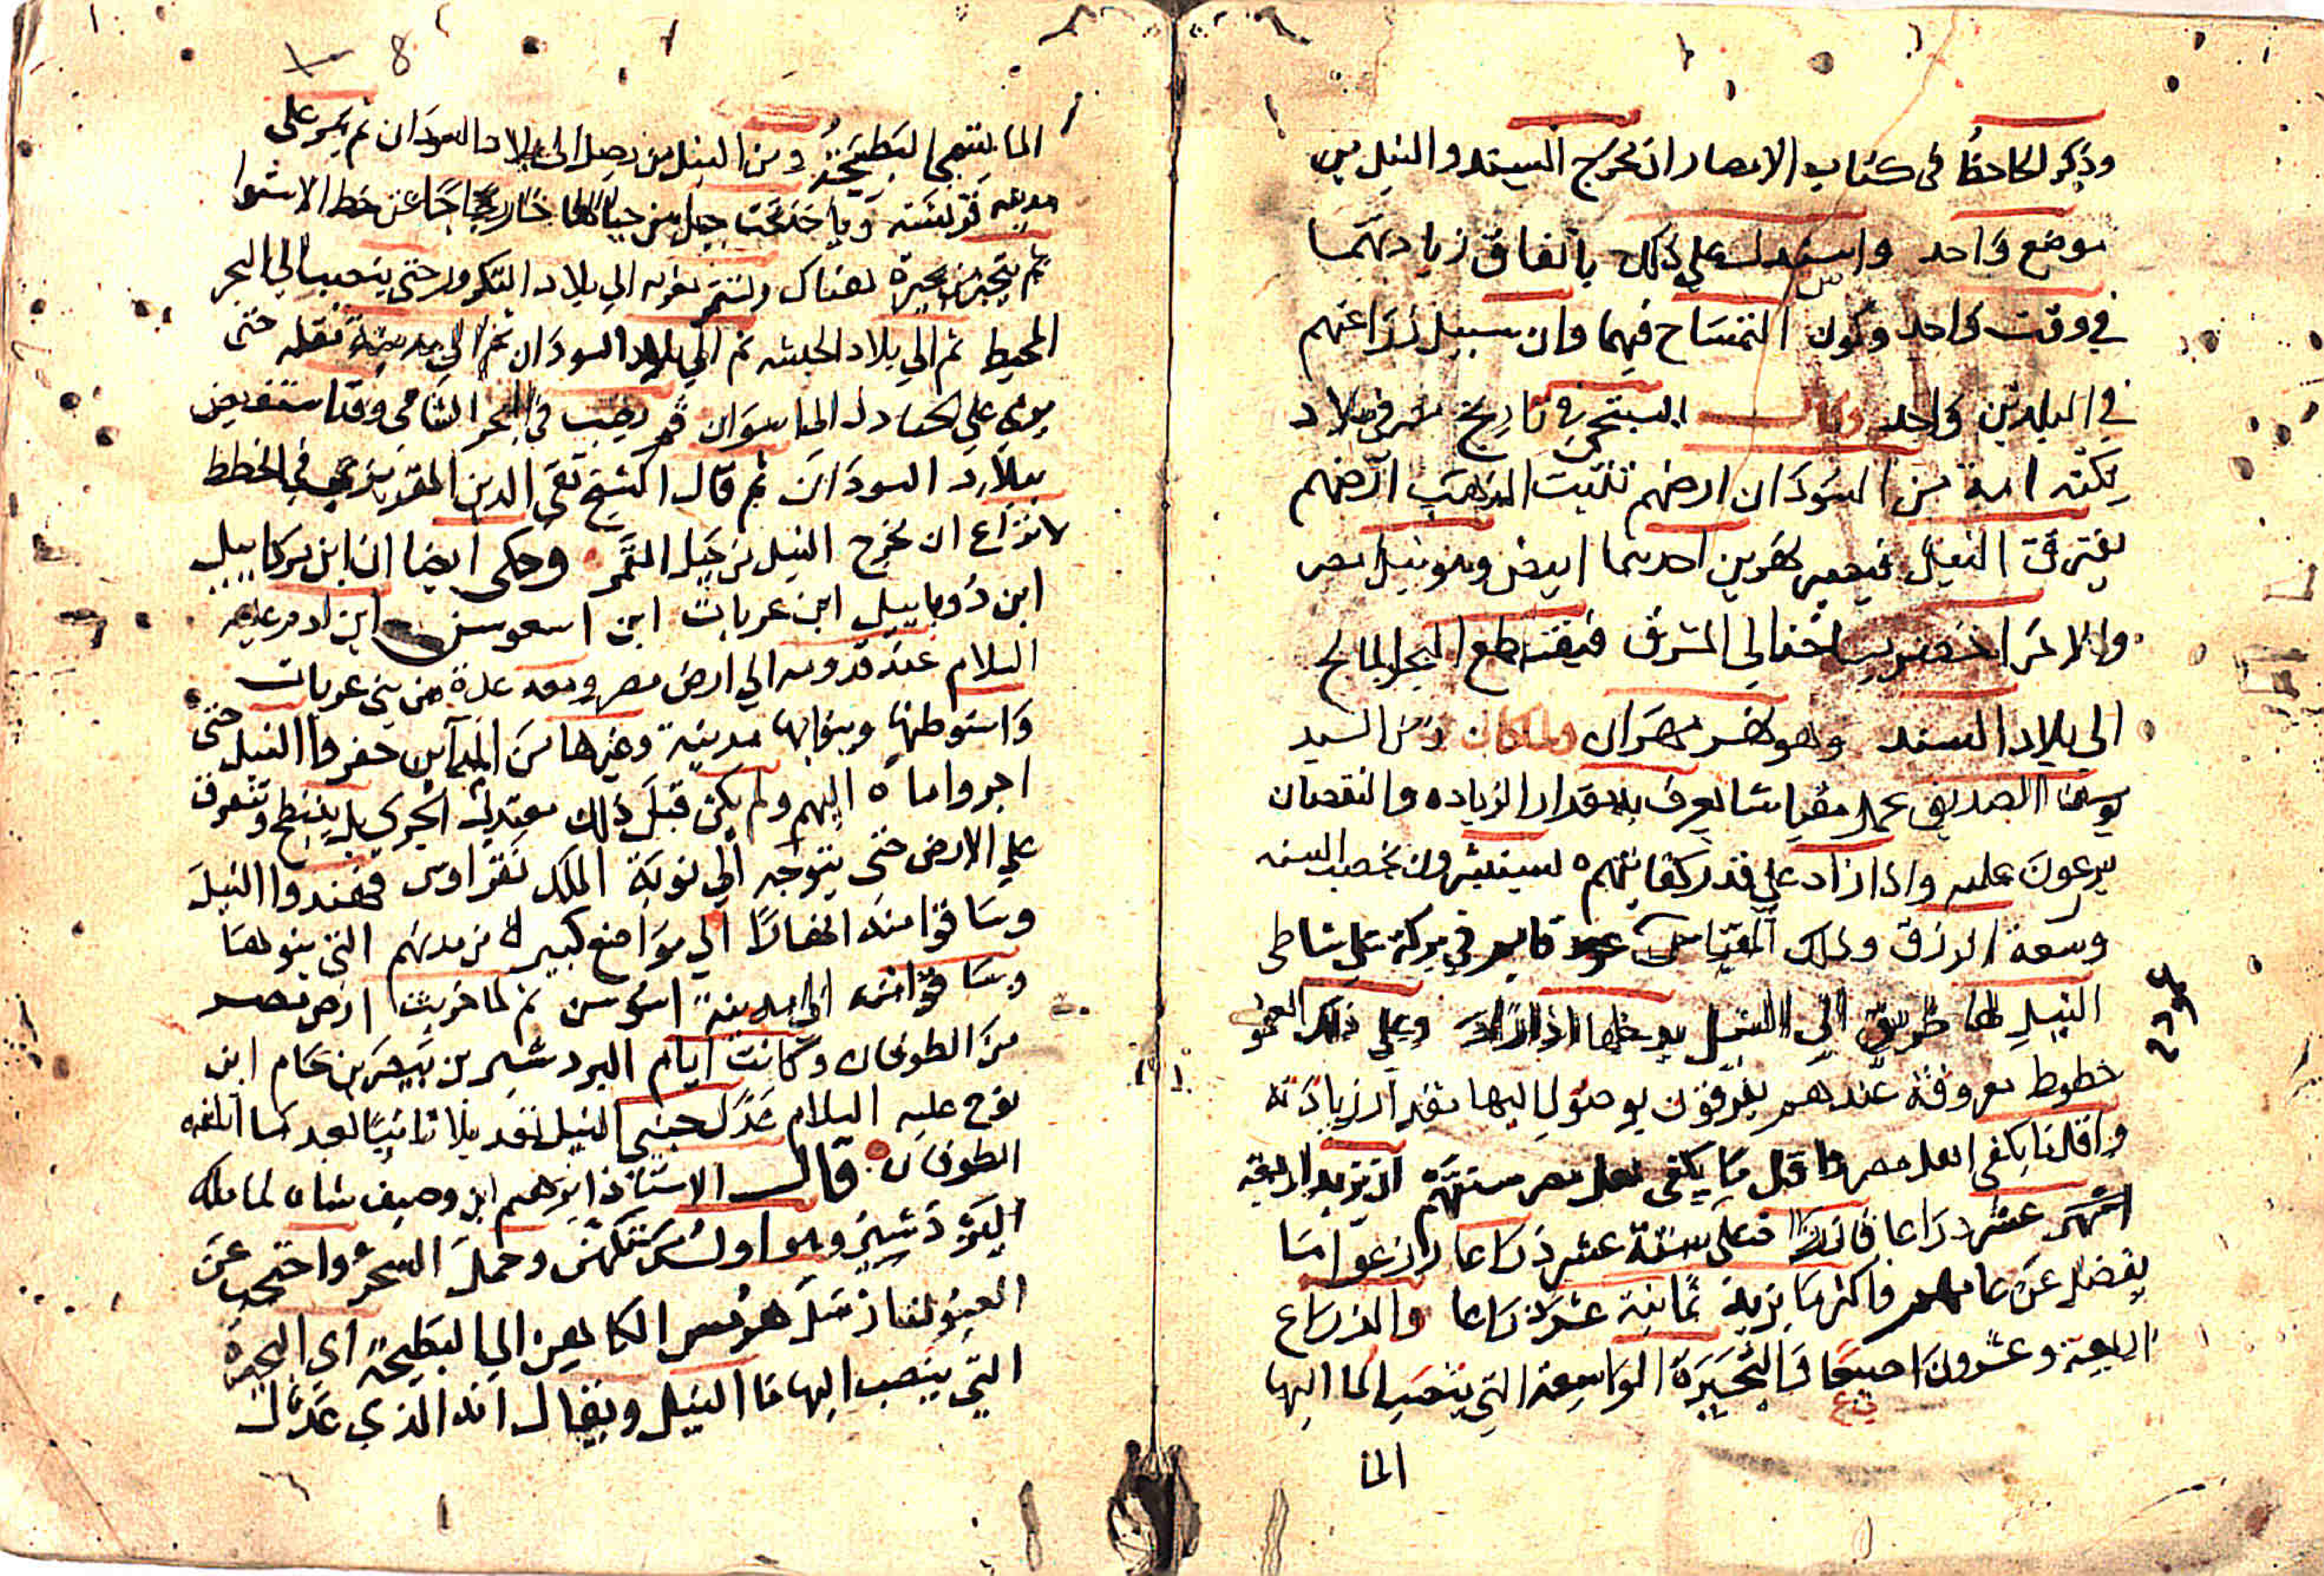 وذكر الجاحظ في كتاب الامصار ان مخرج السند والنيل من
موضع واحد واستدل على ذلك باتفاق زيادتهما
في وقت واحد وكون التمساح فيهما وان سبيل زراعتهم
في البلدين واحد وقال في تاريخ بلاد
امة من السودان ارضهم تنبت الذهب ارضهم
يفترق النيل فيصير نهرين احدهما ابيض وهو نيل مصر
والاخر اخضر الى المشرق فيقطع البحر المالح
الى بلاد السند وهو نهر مهران وكان السيد
يوسف الصديق عمل مقياسا يعرف به مقدار الزياده والنقصان
يزرعون عليه واذا زاد على قدر كفايتهم يستبشرون بخصب السنه
وسعة الرزق وذلك المقياس عمود قايم في بركة على شاطى
النيل لها طريق الى النيل يدخلها اذا زاد وعلى ذلك العمود
خطوط معروفة عندهم يعرفون بوصول اليها مقدار زيادته
واقل ما يكفى اهل مصر سنتهم ان يزيد اربعة
عشر ذراعا فان زاد ستة عشر ذراعا زرعوا ما
يفضل عن عامهم واكثر ما يزيد ثمانية عشر ذراعا والذراع
اربعة وعشرون اصبعا والبحيرة الواسعة التي ينصب الما اليها
الما
8
الما ينتهي البطيحة ومن النيل من يصل الى بلاد السودان ثم يمر على
مدينه وياخذ تحت جبل من جبالها خارجا عن خط الاستوا
ثم بحيرة هناك وتستمر الى بلاد التكرور حتى ينصب الى البحر
المحيط ثم الى بلاد الحبشه ثم الى بلاد السودان ثم الى مدينة حتى
على الجنادل الى اسوان ثم يصب في البحر الشامي
ببلاد السودان ثم قال الشيخ تقي الدين المقريزي في الخطط
لا نزاع ان مخرج النيل من جبل القمر وحكى ايضا ان ابن مركاييل
ابن دوباييل ابن عرباب ابن ابن ادم عليه
السلام عند قدومه الى ارض مصر ومعه عدة من بني عرباب
واستوطنها وبنوا بها مدينة وغيرها من المداين حفروا النيل حتى
اجروا ماه اليهم ولم يكن قبل ذلك معتدل الجري بل ينبطح وتتفرق
على الارض حتى يتوجه الى نوبة الملك نقراوس فهندوا النيل
وساقوا منه انهارا الى مواضع كبيره من مدنهم التي بنوها
وساقوا منه الى مدينة اسوس ثم لما خربت ارض مصر
من الطوفان وكانت ايام البردشير بن بيصر بن حام ابن
نوح عليه السلام عدل جنبي النيل تعديلا ثانيا بعد ما اتلفه
الطوفان قال الاستاذ ابرهيم ابن وصيف شاه لما ملك
البردشير وهو اول من تكهن وحمل السحر واحتجب عن
العيون هرمس الكاهن الى البطيحة اي البحرة
التي ينصب اليها ما النيل ويقال انه الذي عدل